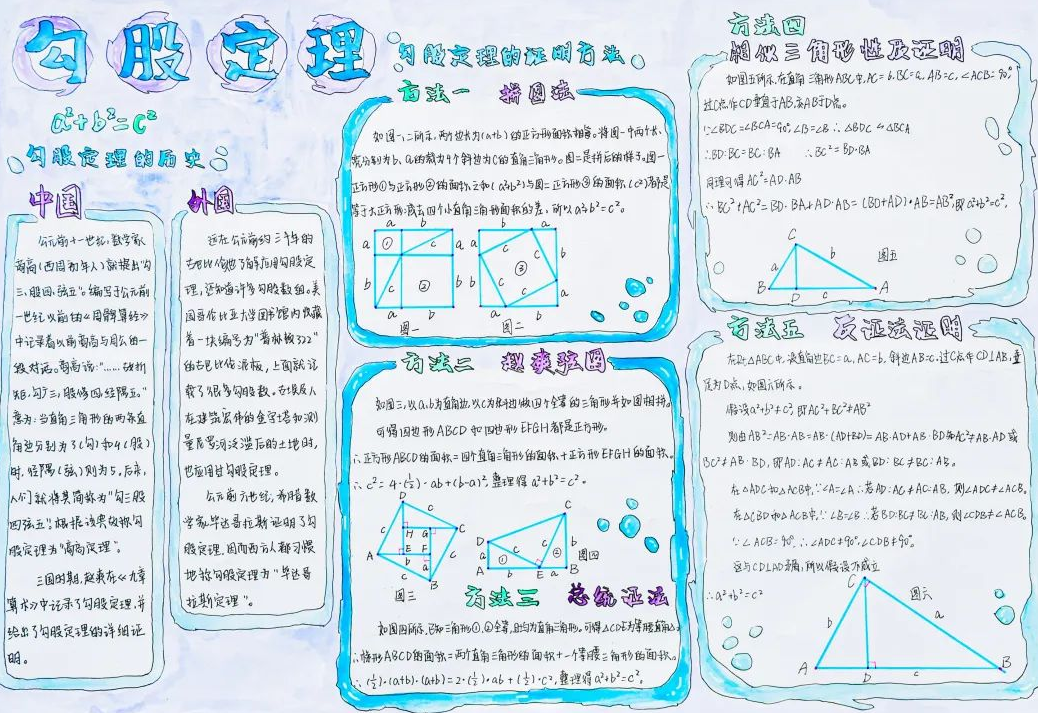 勾股定理
a²+b²=c²
勾股定理的历史
中国
公元前十一世纪,数学家
商高(西周初年人)就提出"勾
三、股四、弦五"。编写于公元前
一世纪以前的《周髀算经》
中记录着以商高与周公的一
段对话。商高说:"……故折
矩,勾广三,股修四,经隅五。"
意为:当直角三角形的两条直
角边分别为3(勾)和4(股)
时,径隅(弦)则为5,后来,
人们就将其简称为"勾三股
四弦五",根据该典故称勾
股定理为"商高定理"。
三国时期,赵爽在《九章
算术》中记录了勾股定理,并
给出了勾股定理的详细证
明。
外国
远在公元前约三千年的
古巴比伦人就了解和应用勾股定
理,还知道许多勾股数组。美
国哥伦比亚大学图书馆内收藏
着一块编号为"普林顿322"
的古巴比伦泥板,上面就记
载了很多勾股数。古埃及人
在建筑宏伟的金字塔和测
量尼罗河泛滥后的土地时,
也应用过勾股定理。
公元前六世纪,希腊数
学家毕达哥拉斯证明了勾
股定理,因而西方人都习惯
地称勾股定理为"毕达哥
拉斯定理"。
勾股定理的证明方法
方法一 拼图法
如图一、二所示,两边长为(a+b)的正方形面积相等。将图一中两个长、
宽分别为b、a的裁为4个斜边为c的直角三角形。图二是拼后的样子。图一
正方形①与正方形②的面积之和(a²+b²)与图二正方形③的面积(c²)都是
等于大正方形减去四个小直角三角形面积的差,所以a²+b²=c²。
a b b a
a ① c a a c c b
b c ② b ③
b c c a
a b a b
图一 图二
方法二 赵爽弦图
如图三,以a、b为直角边,以c为斜边做四个全等的三角形并如图相拼。
可得四边形ABCD和四边形EFGH都是正方形。
∴正方形ABCD的面积=四个直角三角形的面积+正方形EFGH的面积。
∴c²=4·(½)·ab+(b-a)²,整理得a²+b²=c²。
D
c c
H G C
A E F c
c b a
B
图三
C
D c b
a ① c ②
A b E a B
图四
方法三 总统证法
如图四所示,已知三角形①、②全等,且均为直角三角形。可得△CDE为等腰直角△。
∴梯形ABCD的面积=两个直角三角形的面积+一个等腰三角形的面积。
∴(½)·(a+b)·(a+b)=2·(½)·ab+(½)·c²,整理得a²+b²=c²。
方法四
相似三角形性及证明
如图五所示,在直角三角形ABC中,AC=b,BC=a,AB=c,∠ACB=90°,
过C点作CD垂直于AB,交AB于D点。
∵∠BDC=∠BCA=90°,∠B=∠B ∴△BDC∽△BCA
∴BD:BC=BC:BA ∴BC²=BD·BA
同理可得AC²=AD·AB
∴BC²+AC²=BD·BA+AD·AB=(BD+AD)·AB=AB²,即a²+b²=c²。
C
a b 图五
B D c A
方法五 反证法证明
在Rt△ABC中,设直角边BC=a,AC=b,斜边AB=c,过C点作CD⊥AB,垂
足为D点,如图六所示。
假设a²+b²≠c²,即AC²+BC²≠AB²
则由AB²=AB·AB=AB·(AD+BD)=AB·AD+AB·BD知AC²≠AB·AD或
BC²≠AB·BD,即AD:AC≠AC:AB或BD:BC≠BC:AB。
在△ADC和△ACB中,∵∠A=∠A ∴若AD:AC≠AC:AB,则∠ADC≠∠ACB。
在△CBD和△ACB中,∵∠B=∠B ∴若BD:BC≠BC:AB,则∠CDB≠∠ACB。
∵∠ACB=90°,∴∠ADC≠90°,∠CDB≠90°。
这与CD⊥AD矛盾,所以假设不成立
∴a²+b²=c²
C 图六
b a
A D c B